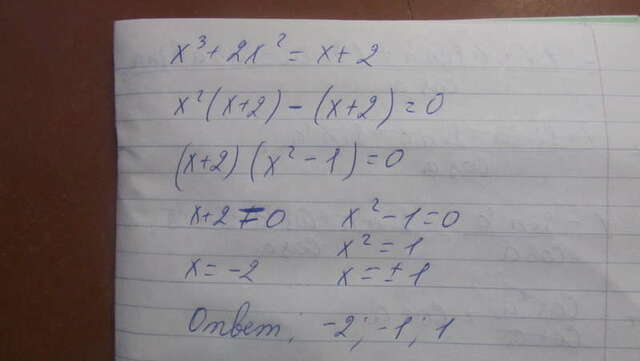 x³ + 2x² = x + 2
x²(x+2) - (x+2) = 0
(x+2)(x² - 1) = 0
x+2 = 0 x² - 1 = 0
x² = 1
x = -2 x = ± 1
Ответ: -2; -1; 1